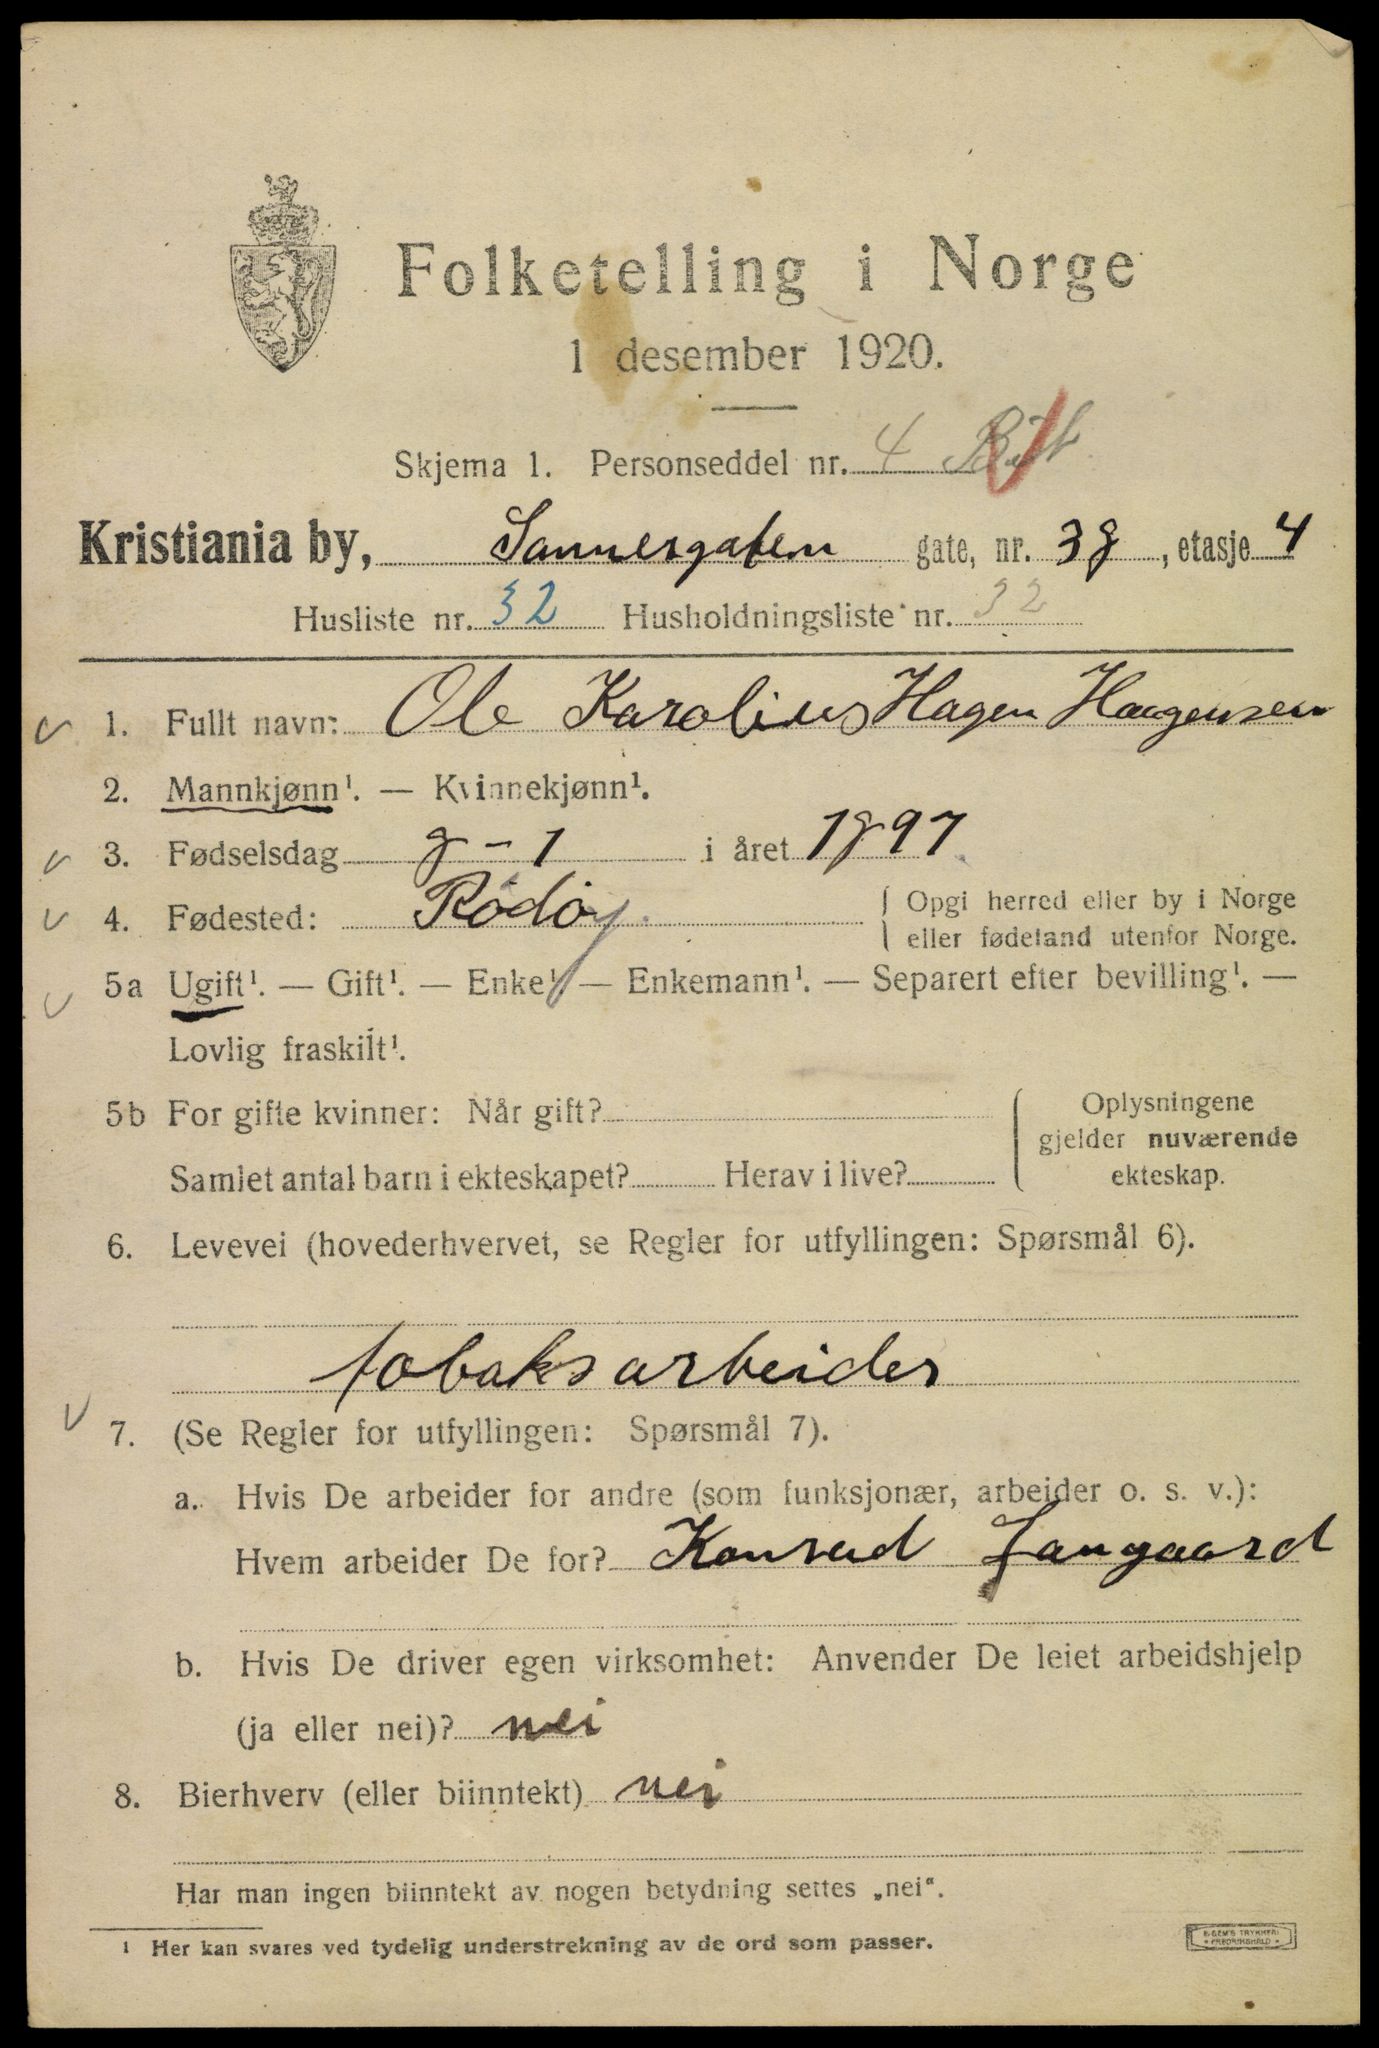 Folketelling i Norge
1 desember 1920.
Skjema 1. Personseddel nr. 4
Kristiania by, Sannergaten gate, nr. 38, etasje 4
Husliste nr. 32 Husholdningsliste nr. 32
1. Fullt navn: Ole Karolius Hagen Haagensen
2. Mannkjønn¹. — Kvinnekjønn¹.
3. Fødselsdag 8 - 1 i året 1897
4. Fødested: Rödöy { Opgi herred eller by i Norge
eller fødeland utenfor Norge.
5a Ugift¹. — Gift¹. — Enke¹. — Enkemann¹. — Separert efter bevilling¹. —
Lovlig fraskilt¹.
5b For gifte kvinner: Når gift? { Oplysningene
gjelder nuværende
Samlet antal barn i ekteskapet? Herav i live? ekteskap.
6. Levevei (hovederhvervet, se Regler for utfyllingen: Spørsmål 6).
tobaksarbeider
7. (Se Regler for utfyllingen: Spørsmål 7).
a. Hvis De arbeider for andre (som funksjonær, arbeider o. s. v.):
Hvem arbeider De for? Konrad Langaard
b. Hvis De driver egen virksomhet: Anvender De leiet arbeidshjelp
(ja eller nei)? nei
8. Bierhverv (eller biinntekt) nei
Har man ingen biinntekt av nogen betydning settes „nei“.
¹ Her kan svares ved tydelig understrekning av de ord som passer.
E. SEM'S TRYKKERI
• FREDRIKSHALD •